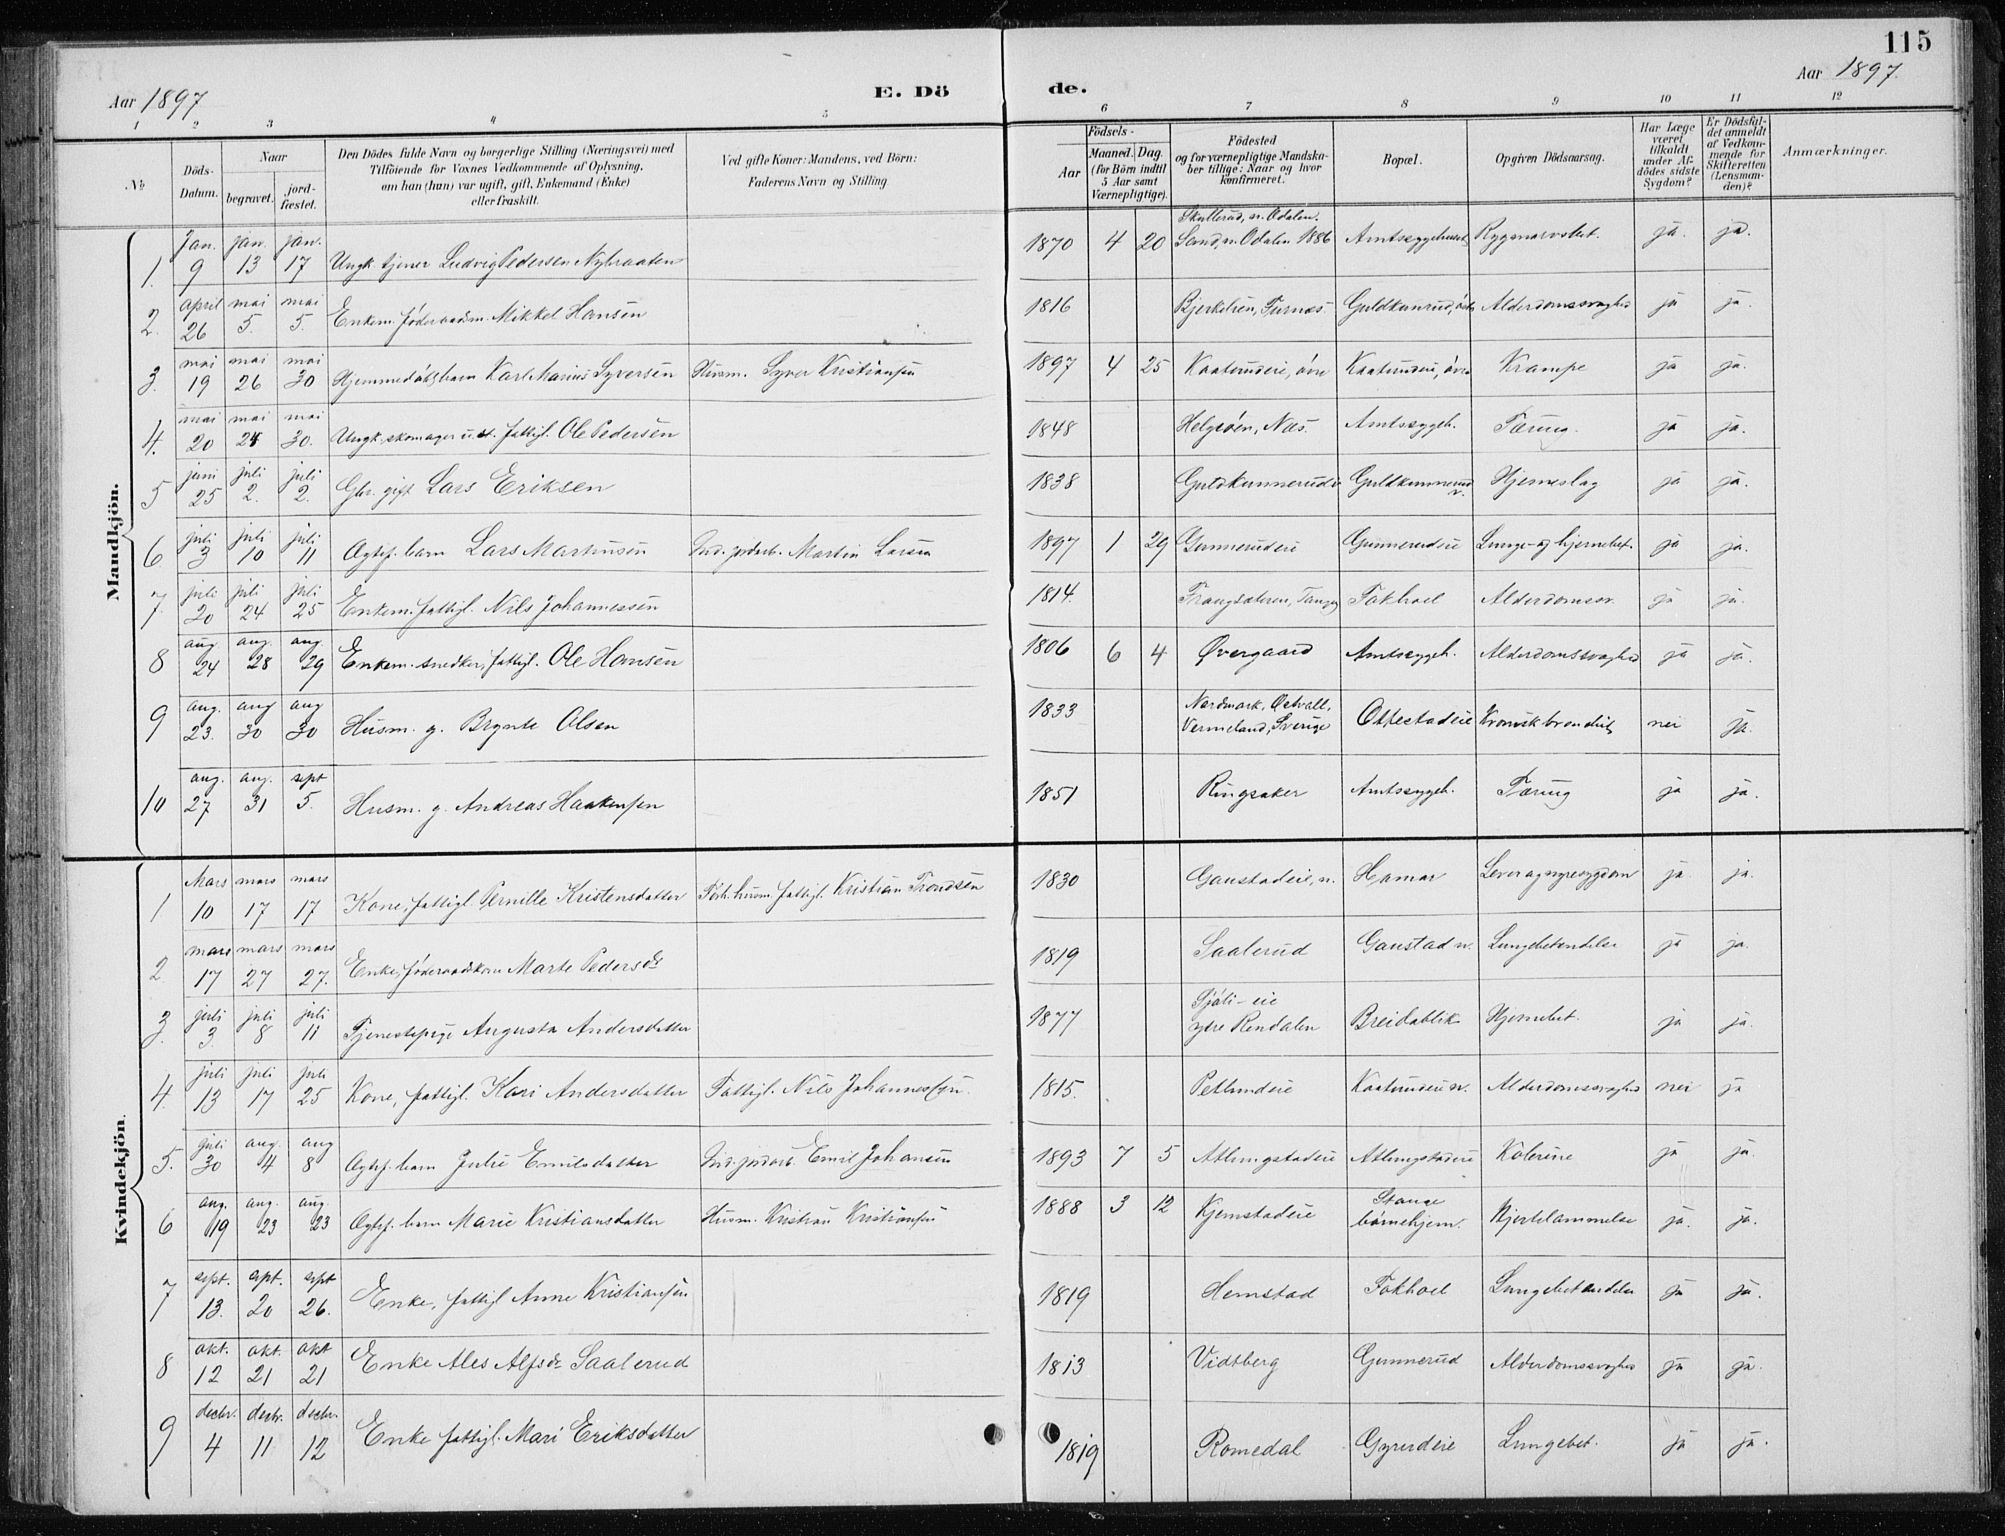 115
Aar 1897
E. Dö
de.
Aar 1897.
1 2 3 4 5 6 7 8 9 10 11 12
No
Döds-Datum.
Naar
begravet.
jord-fæstet.
Den Dödes fulde Navn og borgerlige Stilling (Næringsvei) med
Tilföiende for Voxnes Vedkommende af Oplysning,
om han (hun) var ugift, gift, Enkemand (Enke)
eller fraskilt.
Ved gifte Koner: Mandens, ved Börn:
Faderens Navn og Stilling.
Födsels-
Aar
Maaned. Dag
(for Börn indtil
5 Aar samt
Værnepligtige).
Födested
og for værnepligtige Mandska-
ber tillige: Naar og hvor
konfirmeret.
Bopæl.
Opgiven Dödsaarsag.
Har Læge
været
tilkaldt
under Af-
dödes sidste
Sygdom?
Er Dödsfal-
det anmeldt
af Vedkom-
mende for
Skifteretten
(Lensman-
den)?
Anmærkninger.
Mandkjön.
1. Jan. 9 jan. 13 jan. 17 Ungk. tjener Ludvig Pedersen Nybraaten 1870 4 20 Skullerud, n. Odalen. Sand, n. Odalen 1886 Amtssygehuset Rygmarvsbet. ja. ja.
2. april 26 mai 5. mai 5. Enkem. föderaadsm. Mikkel Hansen 1816 Furnes. Alderdomssvaghed ja ja.
3. mai 19 mai 26 mai 30 Hjemmedöbt barn Karl Marius Syversen Husm. Syver Kristiansen 1897 4 25 Kaaterudeie, övre Kaaterudeie, övre Krampe ja ja.
4. mai 20 mai 24 mai 30. Ungk. skomager fattigl. Ole Pedersen 1848 Helgöen, Næs. Amtssygeh. Tæring. ja ja.
5 juni 25 juli 2. juli 2. Gbr. gift Lars Eriksen 1838 Guldkunnerud v. Guldkunnerud v. Hjerneslag ja ja.
6 juli 3 juli 10 juli 11 Ægtef. barn Lars Martinsen Ind. jordarb. Martin Larsen 1897 1 29 Gunnerudeie Gunnerudeie Lunge- og hjernebet. ja ja.
7. juli 20 juli 24 juli 25 Enkem. fattigl. Nils Johannessen 1814. Tangen Fokhoel Alderdomssv. ja ja.
8 aug. 24 aug. 28 aug. 29 Enkem. snedker, fattigl. Ole Hansen 1806 6 4 Övergaard Amtssygeh. Alderdomssvaghed ja ja.
9 aug. 23. aug 30 aug 30 Husm. g. Brynte Olsen 1833 Nordmark, Östvall, Vermeland, Sverige Ottestadeie Kronisk bronchit nei ja.
10 aug. 27 aug. 31 sept 5. Husm. g. Andreas Haakensen 1851 Ringsaker Amtssygeh. Tæring ja ja.
Kvindekjön.
1 Mars 10 mars 17 mars 17 Kone, fattigl. Pernille Kristensdatter Forh. husm. fattigl. Kristian Trondsen 1830 Gaustadeie, n. Hamar Lever og nyresygdom ja ja.
2 mars 17 mars 27 mars 27. Enke, föderaadskone Marte Pedersdr 1819 Saalerud Gaustad n. Lungebetendelse ja ja.
3. juli 3. juli 8 juli 11 Tjenestepige Augusta Andersdatter 1877 Sjöli-eie ytre Rendalen Breidablik Hjernebet. ja ja.
4. juli 13 juli 17 juli 25 Kone, fattigl. Kari Andersdatter Fattigl. Nils Johannessen. 1815. Petlundeie Kaaterudeie n. Alderdomssvaghed nei ja
5. juli 30 aug. 4 aug 8 Ægtef. barn Julie Emilsdatter Ind. jordarb. Emil Johansen 1893 7 5 Atlungstadeie Atlungstadeie Kolerine ja ja.
6 aug. 19 aug. 23 aug. 23 Ægtef. barn Marie Kristiansdatter Husm. Kristian Kristiansen 1888 3 12 Kjemstadeie Stange börnehjem. Hjertelammelse ja. ja.
7 sept. 13. sept. 20 sept 26. Enke, fattigl Anne Kristiansen 1819 Hemstad Fokhoel Lungebetendelse ja ja.
8 okt. 12 okt. 21 okt 21 Enke Ales Alfsdr Saalerud 1813 Vidtberg Gunnerud Alderdomssvaghed ja ja.
9 decbr. 4 decbr. 11 decbr. 12 Enke fattigl. Mari Eriksdatter 1819 Romedal Gyrudeie Lungebet. ja ja.